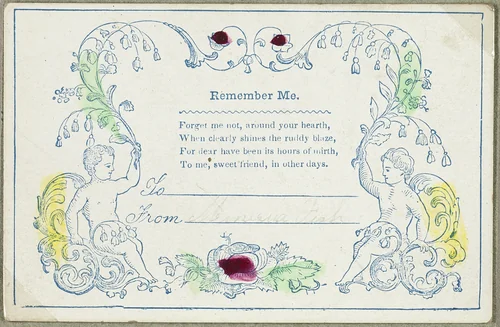 Remember Me.
Forget me not, around your hearth,
When clearly shines the ruddy blaze,
For dear have been its hours of mirth,
To me, sweet friend, in other days.
To
From